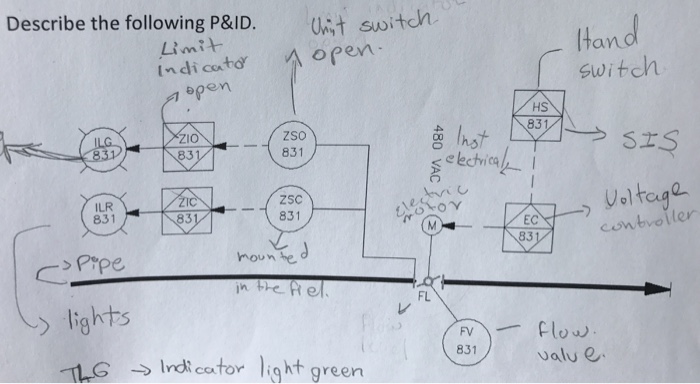 Describe the following P&ID.
Unit switch
open.
Limit
Indicator
open
Hand
switch
HS
831
SIS
ILG
831
ZIO
831
ZSO
831
480 VAC
Inst
electrical
Electric
motor
M
EC
831
Voltage
controller
ILR
831
ZIC
831
ZSC
831
mounted
in the fiel.
Pipe
FL
lights
FV
831
flow.
value.
ILG → Indicator light green